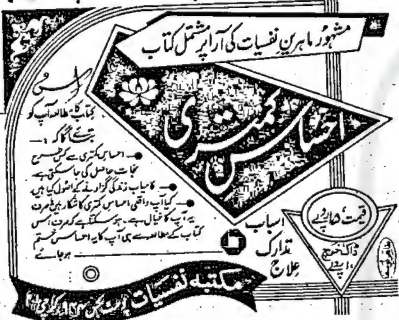 مشہور ماہرین نفسیات کی آرا پر مشتمل کتاب
احساس کمتری
اس
کتاب کا مطالعہ آپ کو
بتائے گا کہ :-
احساس کمتری سے کس طرح
نجات حاصل کی جا سکتی ہے
کامیاب زندگی گزارنے کے اصول کیا ہیں
کیا آپ واقعی احساس کمتری کا شکار ہیں یا صرف
یہ آپ کا خیال ہے۔ ہو سکتا ہے کہ صرف اس
کتاب کے مطالعہ سے ہی آپ کا یہ احساس ختم
ہو جائے
اسباب
تدارک
علاج
قیمت
روپے
ڈاک خرچ
روپے
مکتبہ نفسیات پوسٹ بکس کراچی